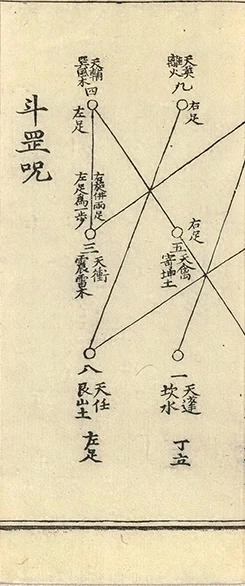 天英
離火
九
右足
右足
五
天禽
寄坤土
一
天蓬
坎水
丁立
天輔
巽風木
四
左足
右併兩足
左足為一步
三
天衝
震雷木
八
天任
艮山土
左足
斗罡呪